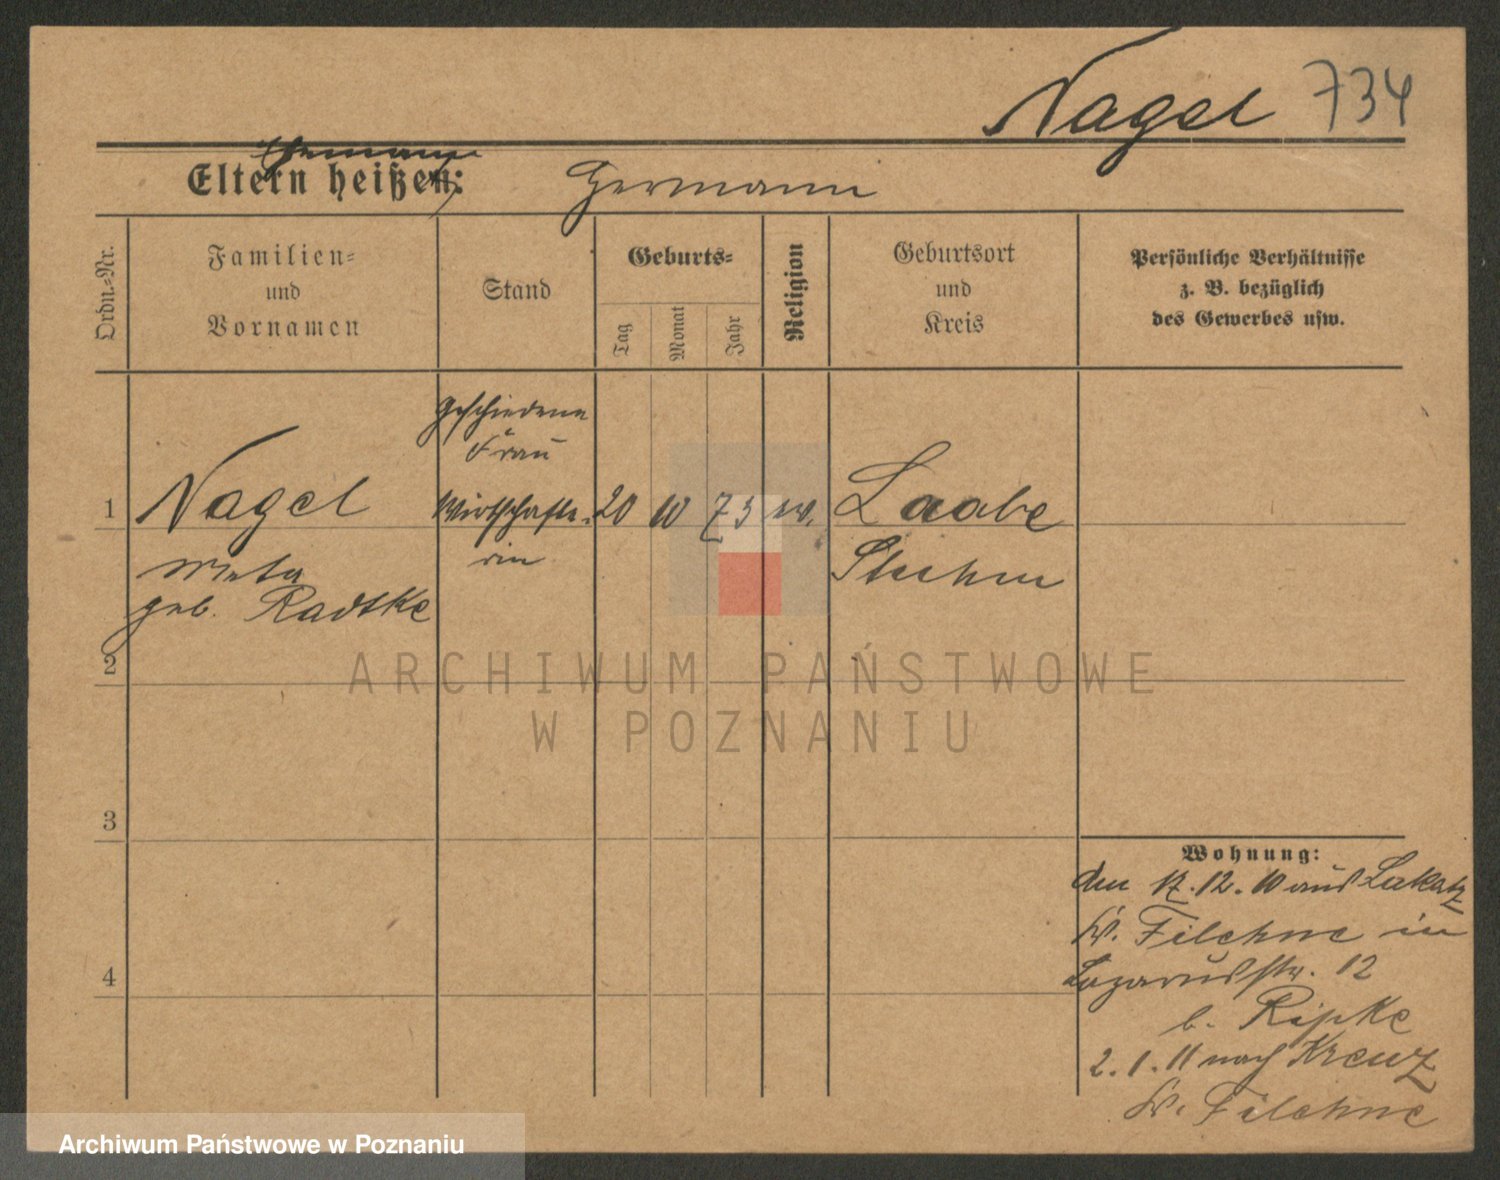 Nagel 734
Ehemann
Eltern heißen: Hermann
Ordn.-Nr.
Familien-
und
Vornamen
Stand
Geburts-
Tag
Monat
Jahr
Religion
Geburtsort
und
Kreis
Persönliche Verhältnisse
z. B. bezüglich
des Gewerbes usw.
geschiedene
Frau
1 Nagel Wirthschafte- 20 10 73 ev. Laabe
rin
Meta
Stuhm
geb. Radtke
2
3
4
Wohnung:
den 17.12.10 aus Lukatz
Kr. Filehne in
Lazarusstr. 12
b. Ripke
2.1.11 nach Kreuz
Kr. Filehne
ARCHIWUM PAŃSTWOWE
W POZNANIU
Archiwum Państwowe w Poznaniu